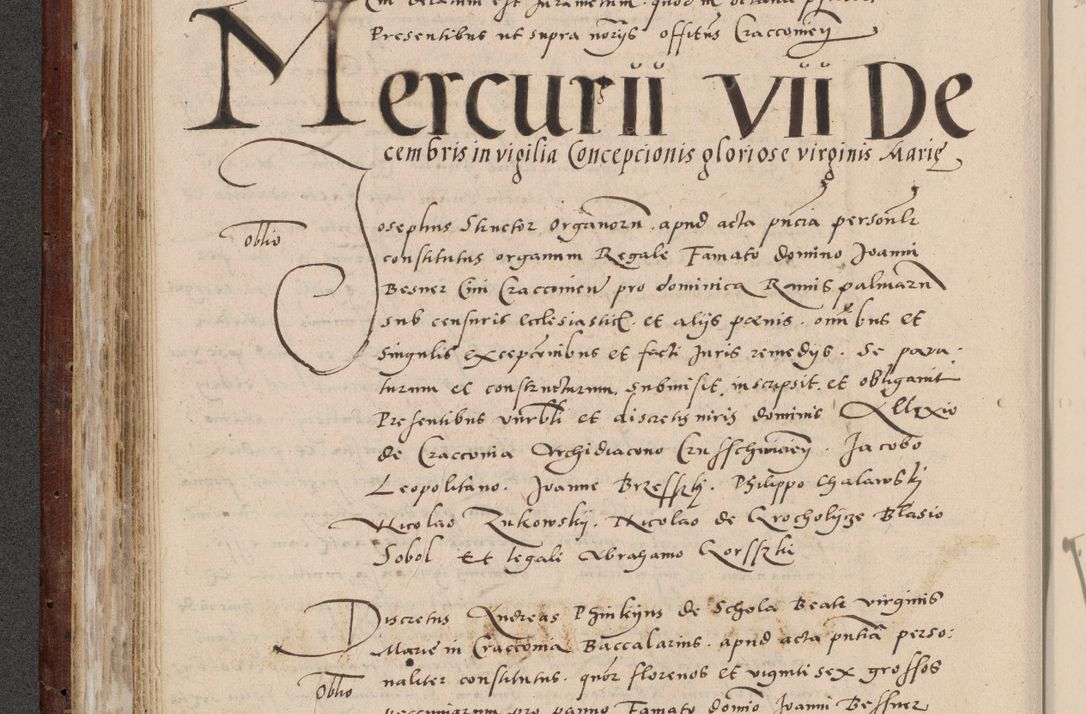 Presentibus ut supra notarijs offitius Cracconien
Mercurii vii De
cembris in vigilia Concepcionis gloriose virginis Marie
Josephus Structor Organorum apud acta pncia personlr
oblio
constitutus organum Regale Famato domino Joanni
Besner Civi Cracconien pro dominica Ramis palmarum
sub censuris ecclesiastic. et alijs poenis. omnibus et
singulis excepcionibus et facti Juris remedijs. se para-
turum et constructurum submisit, inscripsit, et obligavit
Presentibus vnrbli et discretis viris dominis Allexio
de Cracconia Archidiacono Crusschwicien Jacobo
Leopolitano. Joanne Brzesszki. Philippo Chalawski
Nicolao Zukowskij. Nicolao de Grocholijcze Blasio
Sobol et legali Abrahamo Gorsszki
Discretus Andreas Phinkijus de Schola Beate virginis
Marie in Cracconia Baccalarius. apud acta pntia perso:
naliter constitutus. quatuor florenos et viginti sex grossos
oblio
peccuniarum pro panno Famato domino Joanni Bessner